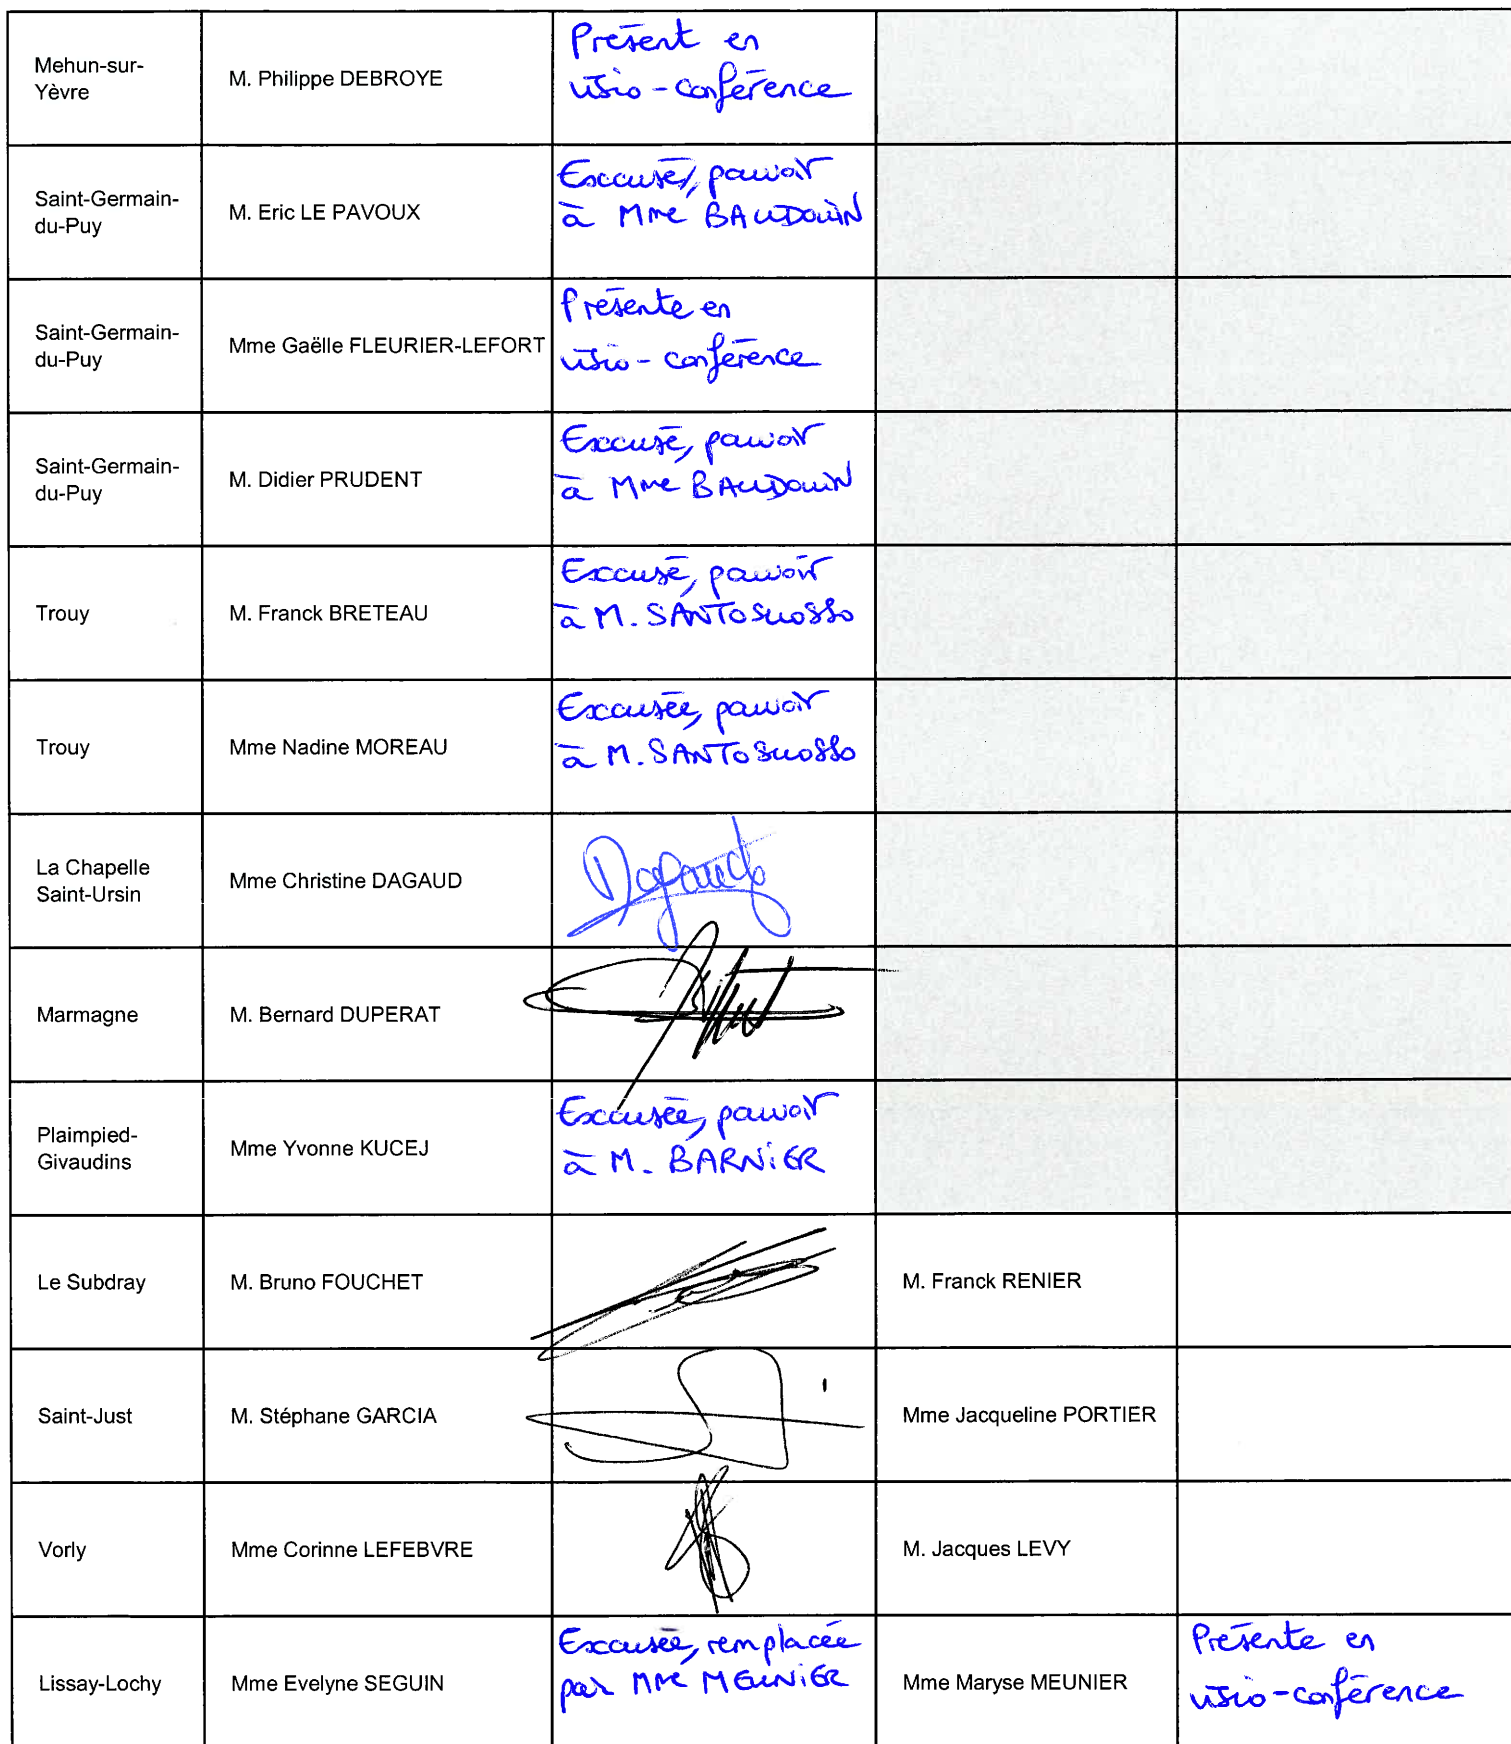 Mehun-sur-
Yèvre
M. Philippe DEBROYE
Présent en
visio-conférence
Saint-Germain-
du-Puy
M. Eric LE PAVOUX
Excusé, pouvoir
à Mme BAUDOUIN
Saint-Germain-
du-Puy
Mme Gaëlle FLEURIER-LEFORT
Présente en
visio-conférence
Saint-Germain-
du-Puy
M. Didier PRUDENT
Excusé, pouvoir
à Mme BAUDOUIN
Trouy
M. Franck BRETEAU
Excusé, pouvoir
à M. SANTOSUOSSO
Trouy
Mme Nadine MOREAU
Excusée, pouvoir
à M. SANTOSUOSSO
La Chapelle
Saint-Ursin
Mme Christine DAGAUD
Dagaud
Marmagne
M. Bernard DUPERAT
Plaimpied-
Givaudins
Mme Yvonne KUCEJ
Excusée, pouvoir
à M. BARNiER
Le Subdray
M. Bruno FOUCHET
M. Franck RENIER
Saint-Just
M. Stéphane GARCIA
Mme Jacqueline PORTIER
Vorly
Mme Corinne LEFEBVRE
M. Jacques LEVY
Lissay-Lochy
Mme Evelyne SEGUIN
Excusée, remplacée
par Mme MEUNiER
Mme Maryse MEUNIER
Présente en
visio-conférence